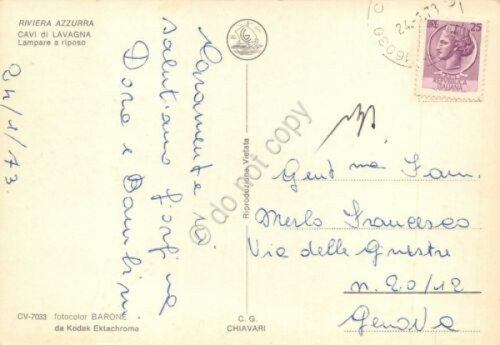 RIVIERA AZZURRA
CAVI di LAVAGNA
Lampare a riposo
24/1/73
Caramente vi
salutiamo
Dora e Bambini
CV-7033 fotocolor BARONE
da Kodak Ektachrome
Riproduzione Vietata
C. G.
CHIAVARI
25
Gent ma Fam.
Merlo Francesco
Via delle Ginestre
n. 20/12
Genova
do not copy